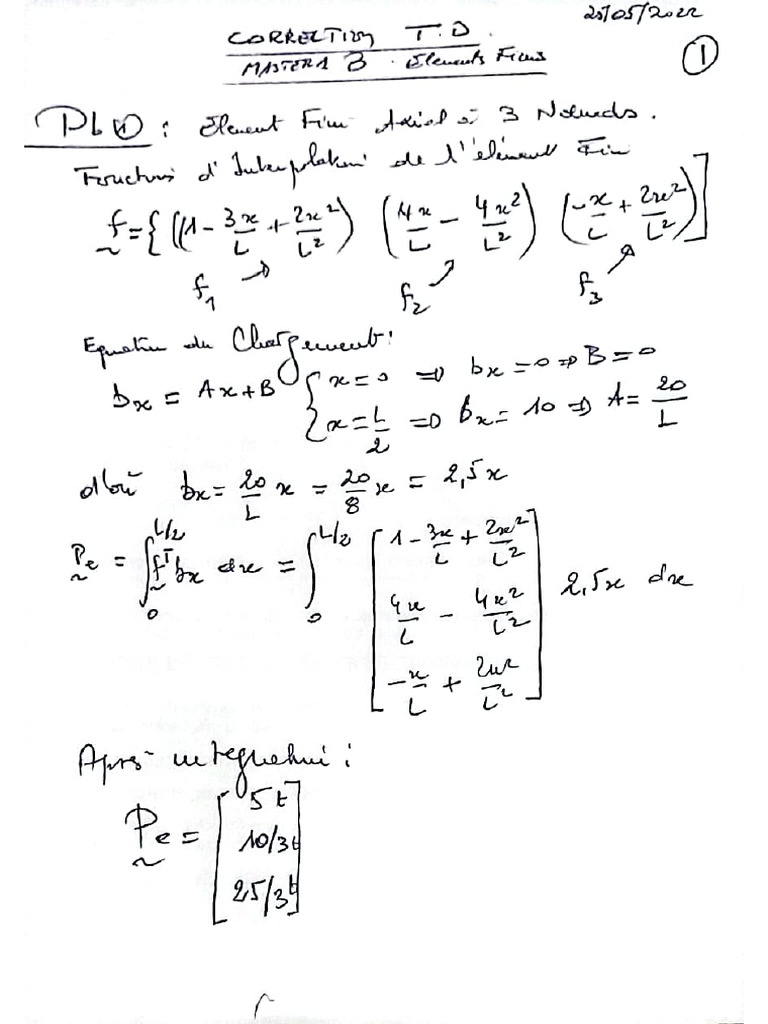 25/05/2022
CORRECTION T.D.
MASTER 1 B. Elements Finis
1
Pb ① : Element Fini Axial à 3 Noeuds.
Fonctions d'Interpolation de l'élément Fini
f = { ((1 - 3x/L + 2x²/L²) (4x/L - 4x²/L²) (-x/L + 2x²/L²) ]
f₁ f₂ f₃
Equation du Chargement :
bx = Ax+B { x=0 ⇒ bx=0 ⇒ B=0
{ x=L/2 ⇒ bx=10 ⇒ A=20/L
d'où bx = 20/L x = 20/8 x = 2,5x
Pe = ∫₀^L/2 fᵀ bx dx = ∫₀^L/2 [ 1 - 3x/L + 2x²/L²
4x/L - 4x²/L²
-x/L + 2x²/L² ] 2,5x dx
Après integration :
Pe = [ 5t
10/3t
25/3t ]